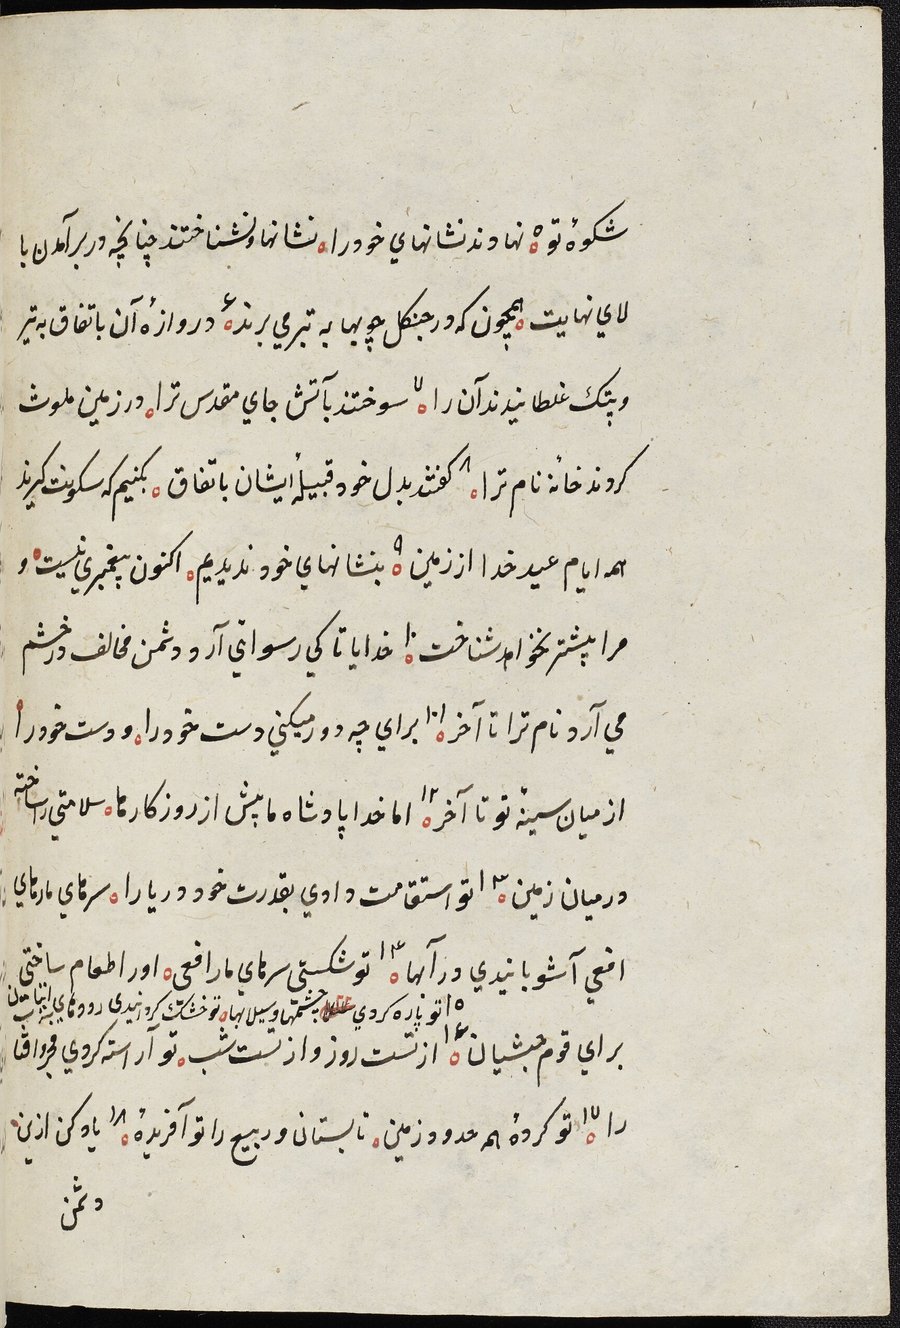 شکوهٔ تو ه ۵ نهادند نشانهاي خود را ه نشانها و نشناختند چنانچه در برآمدن با
لاي نهایت ه همچون که در جنکل چوبها به تبر مي برند ه ۶ دروازهٔ آن باتفاق به تیر
و پتک غلطانیدند آن را ه ۷ سوختند بآتش جاي مقدس ترا ه در زمین ملوث
کردند خانهٔ نام ترا ه ۸ کفتند بدل خود قبیلهٔ ایشان باتفاق ه بکنیم که سکونت کیرند
همه ایام عید خدا از زمین ه ۹ بنشانهاي خود ندیدیم ه اکنون پیغمبري نیست ه و
مرا پیشتر نخواهد شناخت ه ۱۰ خدایا تا کي رسوائي آرد دشمن مخالف در خشم
مي آرد نام ترا تا آخر ه ۱۱ براي چه دور میکني دست خود را ه و دست خود را
از میان سینهٔ تو تا آخر ه ۱۲ اما خدا پادشاه ما پیش از روزکارها ه سلامتي را ساخته
در میان زمین ه ۱۳ تو استقامت دادي بقدرت خود دریا را ه سرهاي مارهاي
افعي آشوبانیدي در آبها ه ۱۴ تو شکستي سرهاي مار افعي ه او را طعام ساختي
۱۵ تو پاره کردي چشمها و سیلابها ه تو خشک کردانیدي رودهاي
براي قوم حبشیان ه ۱۶ از تست روز و از تست شب ه تو آراسته کردي فجر و آفتاب
را ه ۱۷ تو کردهٔ همه حدود زمین ه تابستان و ربیع را تو آفریدهٔ ه ۱۸ یاد کن ازین
دشمن